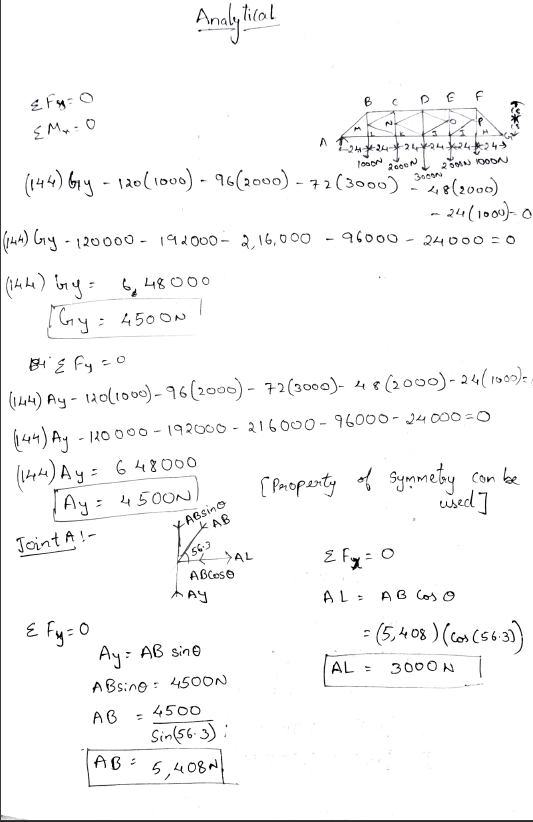 Analytical
ΣFx = 0
ΣMx = 0
B C D E F
M N O P
A L K J I H G
24 24 24 24 24 24
1000N 2000N 3000N 2000N 1000N
(144) Gy - 120(1000) - 96(2000) - 72(3000) - 48(2000)
- 24(1000) = 0
(144) Gy - 120000 - 192000 - 2,16,000 - 96000 - 24000 = 0
(144) Gy = 6,48000
Gy = 4500N
ΣFy = 0
(144) Ay - 120(1000) - 96(2000) - 72(3000) - 48(2000) - 24(1000) =
(144) Ay - 120000 - 192000 - 216000 - 96000 - 24000 = 0
(144) Ay = 648000
Ay = 4500N
[Property of Symmetry can be
used]
Joint A :-
ABsinθ
AB
56.3
AL
ABCosθ
Ay
ΣFy = 0
Ay = AB sinθ
ABsinθ = 4500N
AB = 4500
Sin(56.3)
AB = 5,408N
ΣFx = 0
AL = AB Cosθ
= (5,408) (cos(56.3))
AL = 3000N